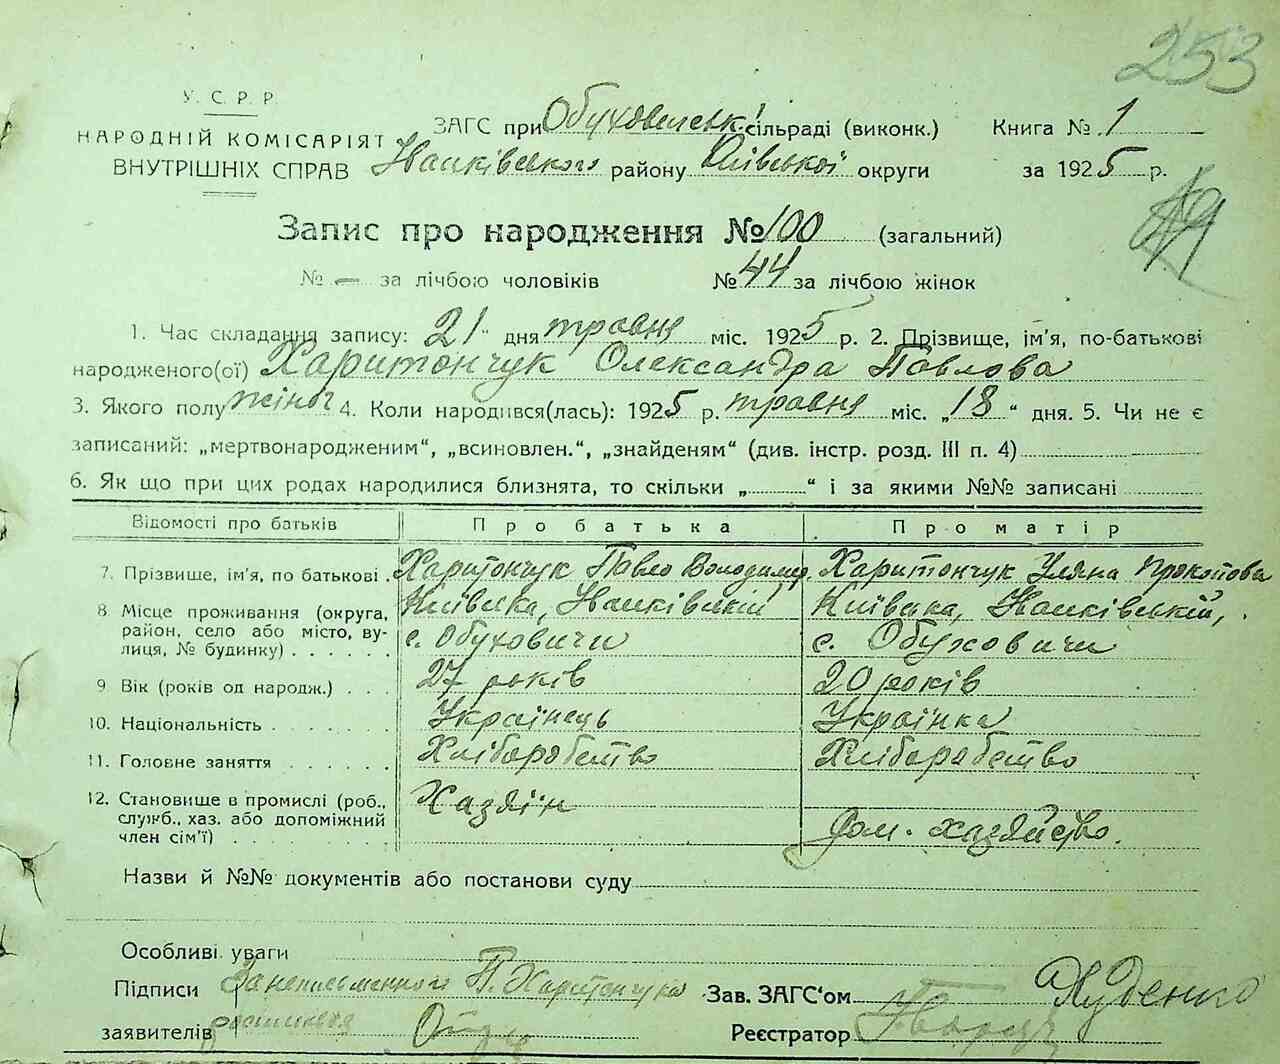 253
У. С. Р. Р.
НАРОДНІЙ КОМІСАРІЯТ
ВНУТРІШНІХ СПРАВ
ЗАГС при Обуховицьк. сільраді (виконк.) Книга № 1
району Київської округи за 1925 р.
Запис про народження № 100 (загальний)
№ — за лічбою чоловіків № 44 за лічбою жінок
1. Час складання запису: 21 " дня травня міс. 1925 р. 2. Прізвище, ім'я, по-батькові
народженого(ої) Харитончук Олександра Павлова
3. Якого полу жіноч 4. Коли народився(лась): 1925 р. травня міс. „18" дня. 5. Чи не є
записаний: „мертвонародженим", „всиновлен.", „знайденям" (див. інстр. розд. III п. 4)
6. Як що при цих родах народилися близнята, то скільки „ " і за якими №№ записані
Відомості про батьків Про батька Про матір
7. Прізвище, ім'я, по батькові . Харитончук Павло Володимир. Харитончук Уляна Прокопова
8. Місце проживання (округа, район, село або місто, вулиця, № будинку) . . . . . .
Київська, Київська,
с. Обуховичи с. Обуховичи
9 Вік (років од народж.) . . . 27 років 20 років
10. Національність . . . . . . . Українець Українка
11. Головне заняття . . . . . . Хліборобство Хліборобство
12. Становище в промислі (роб., служб., хаз. або допоміжний член сім'ї) . . . . . . . .
Хазяїн Дом. хазяйство.
Назви й №№ документів або постанови суду
Особливі уваги
Підписи За неписьменного П. Харитончука Зав. ЗАГС'ом
заявителів Реєстратор